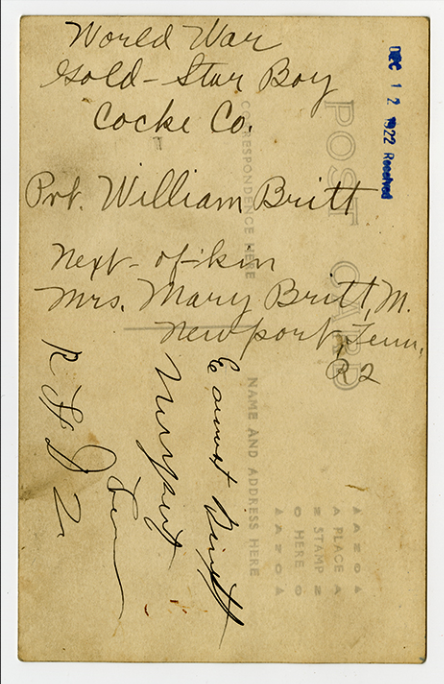 World War
Gold-Star Boy
Cocke Co.
Pvt. William Britt
Next-of-kin
Mrs. Mary Britt, M.
Newport, Tenn.
R2
Britt
Newport
Tenn
R F D 2
DEC 12 1922 Received
POST CARD
CORRESPONDENCE HERE
NAME AND ADDRESS HERE
AZO
PLACE
STAMP
HERE
AZO